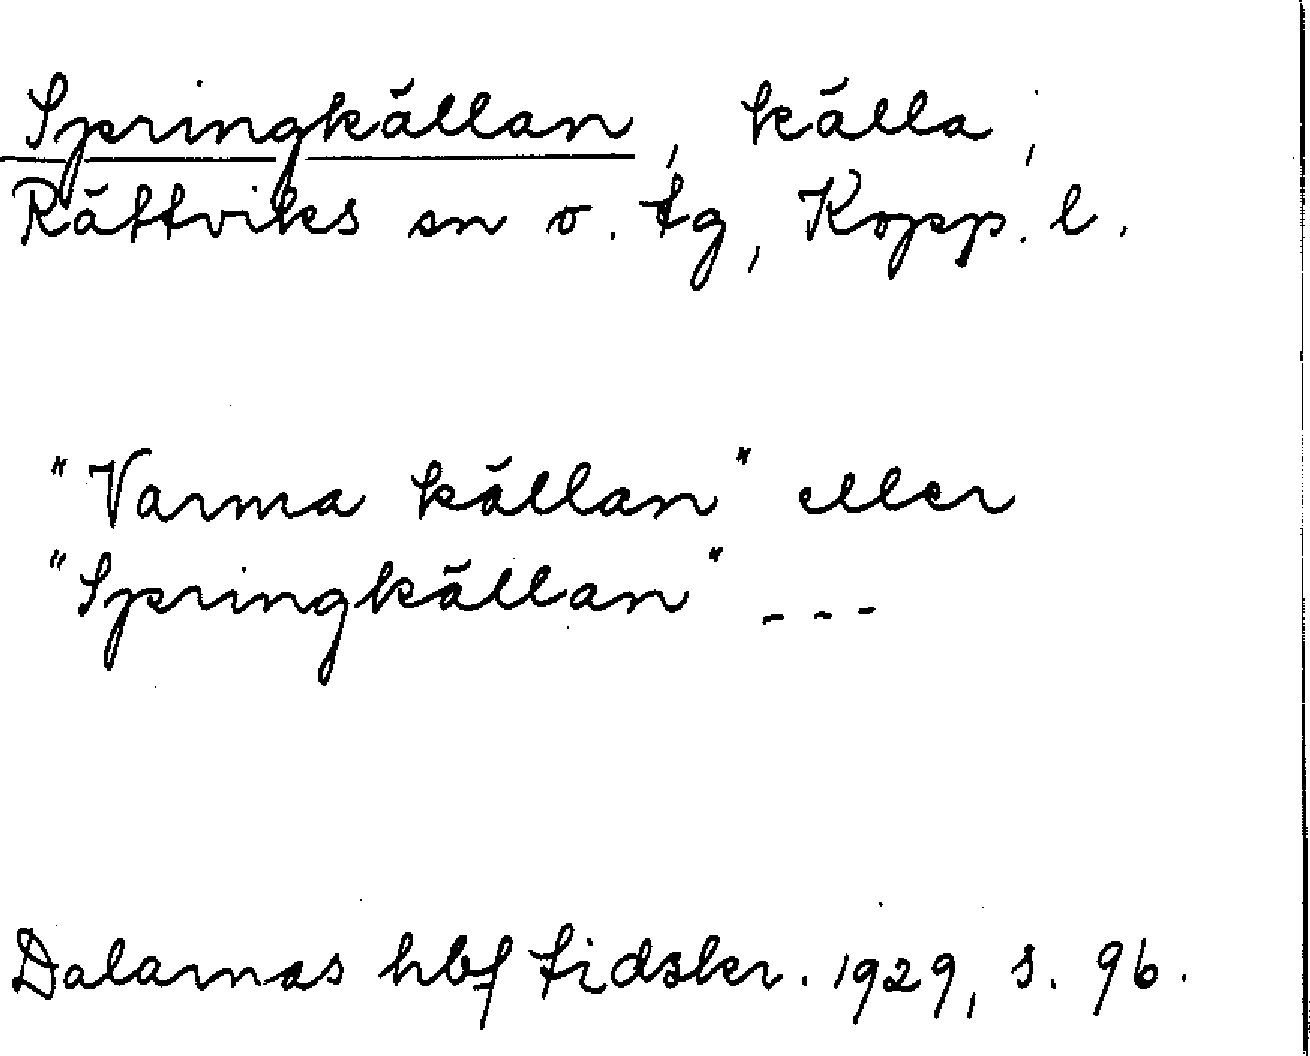 Springkällan, källa,
Rättviks sn o. tg, Kopp. l.
"Varma källan" eller
"Springkällan" - - -
Dalarnas hbf tidskr. 1929, s. 96.